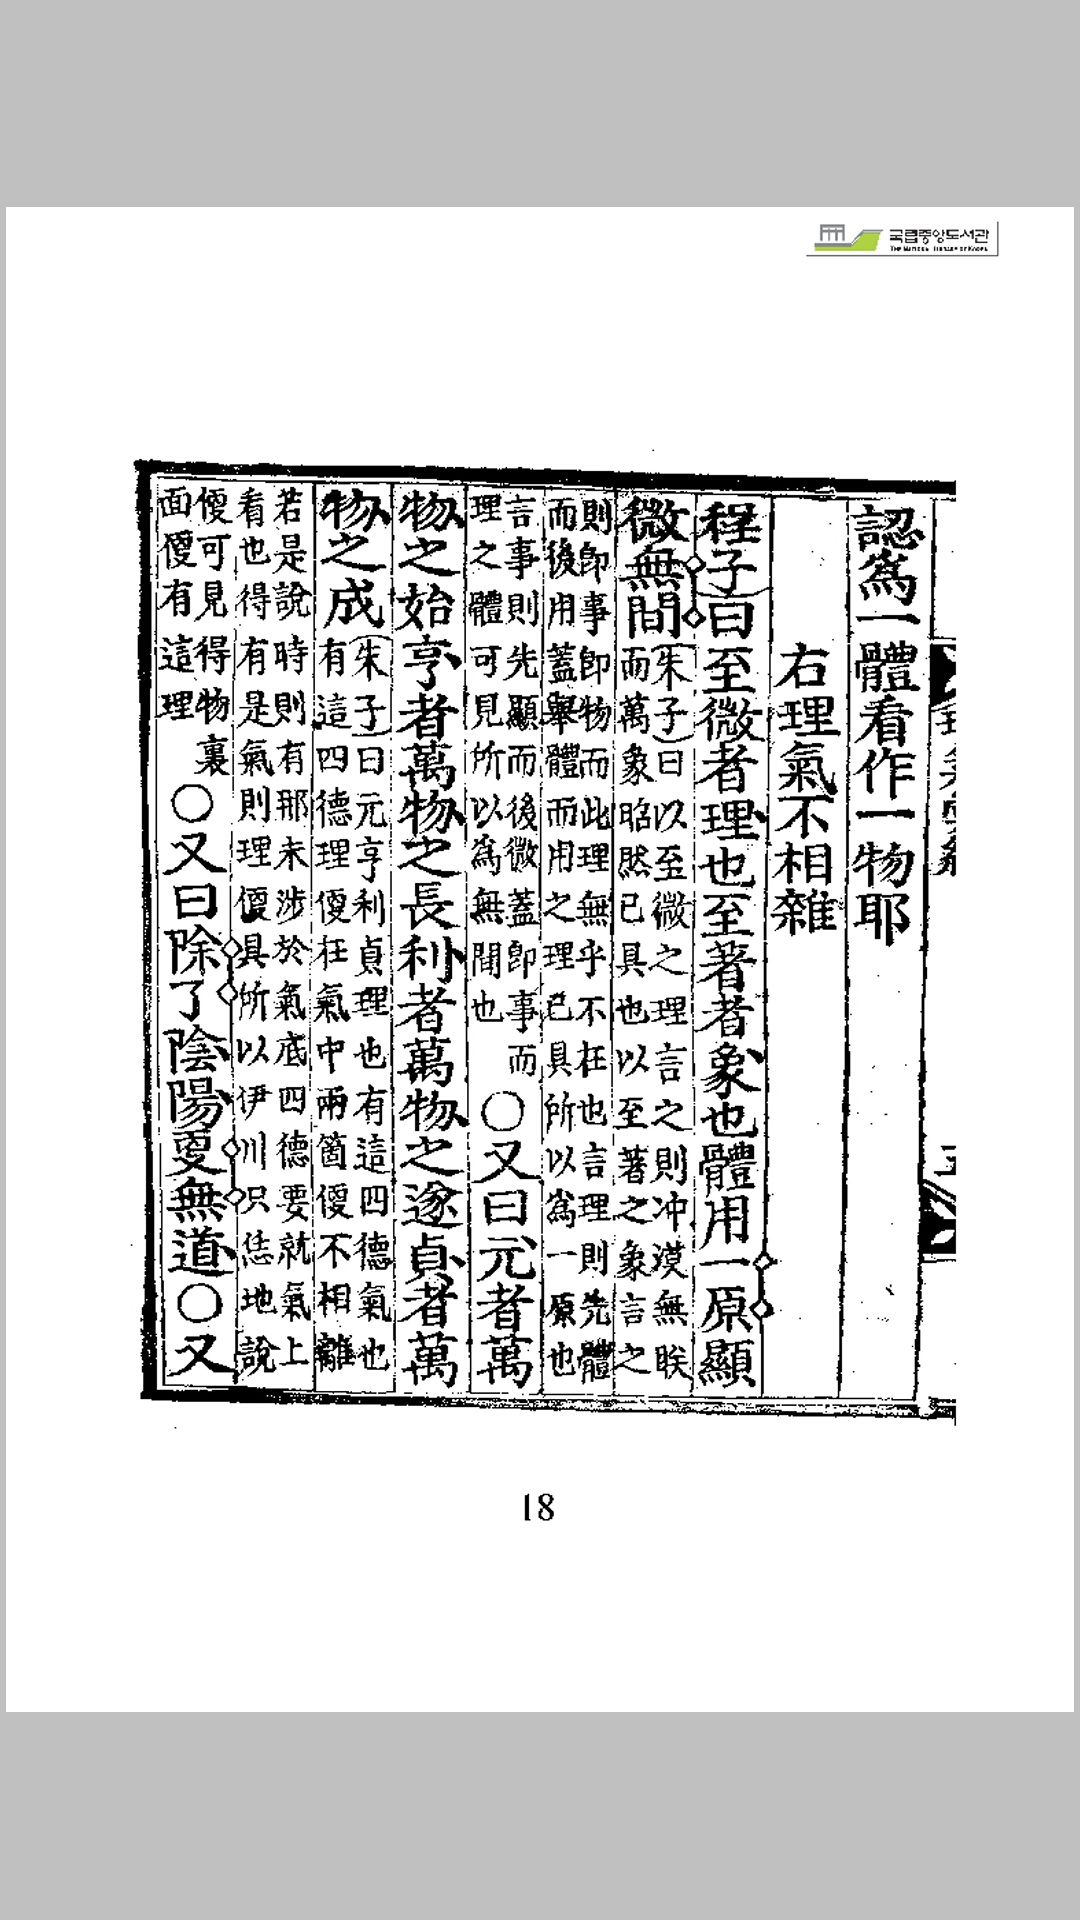 国립중앙도서관
THE NATIONAL LIBRARY OF KOREA
認爲一體看作一物耶
右理氣不相雜
程子曰至微者理也至著者象也體用一原顯
微無間
朱子曰以至微之理言之則冲漠無眹
而萬象昭然已具也以至著之象言之
則卽事卽物而此理無乎不在也言理則先體
而後用蓋舉體而用之理已具所以爲一原也
言事則先顯而後微蓋卽事而
理之體可見所以爲無間也
○又曰元者萬
物之始亨者萬物之長利者萬物之遂貞者萬
物之成
朱子曰元亨利貞理也有這四德氣也
有這四德理便在氣中兩箇便不相離
若是說時則有那未涉於氣底四德要就氣上
看也得有是氣則理便具所以伊川只恁地說
便可見得物裏
面便有這理
○又曰除了陰陽更無道○又
18